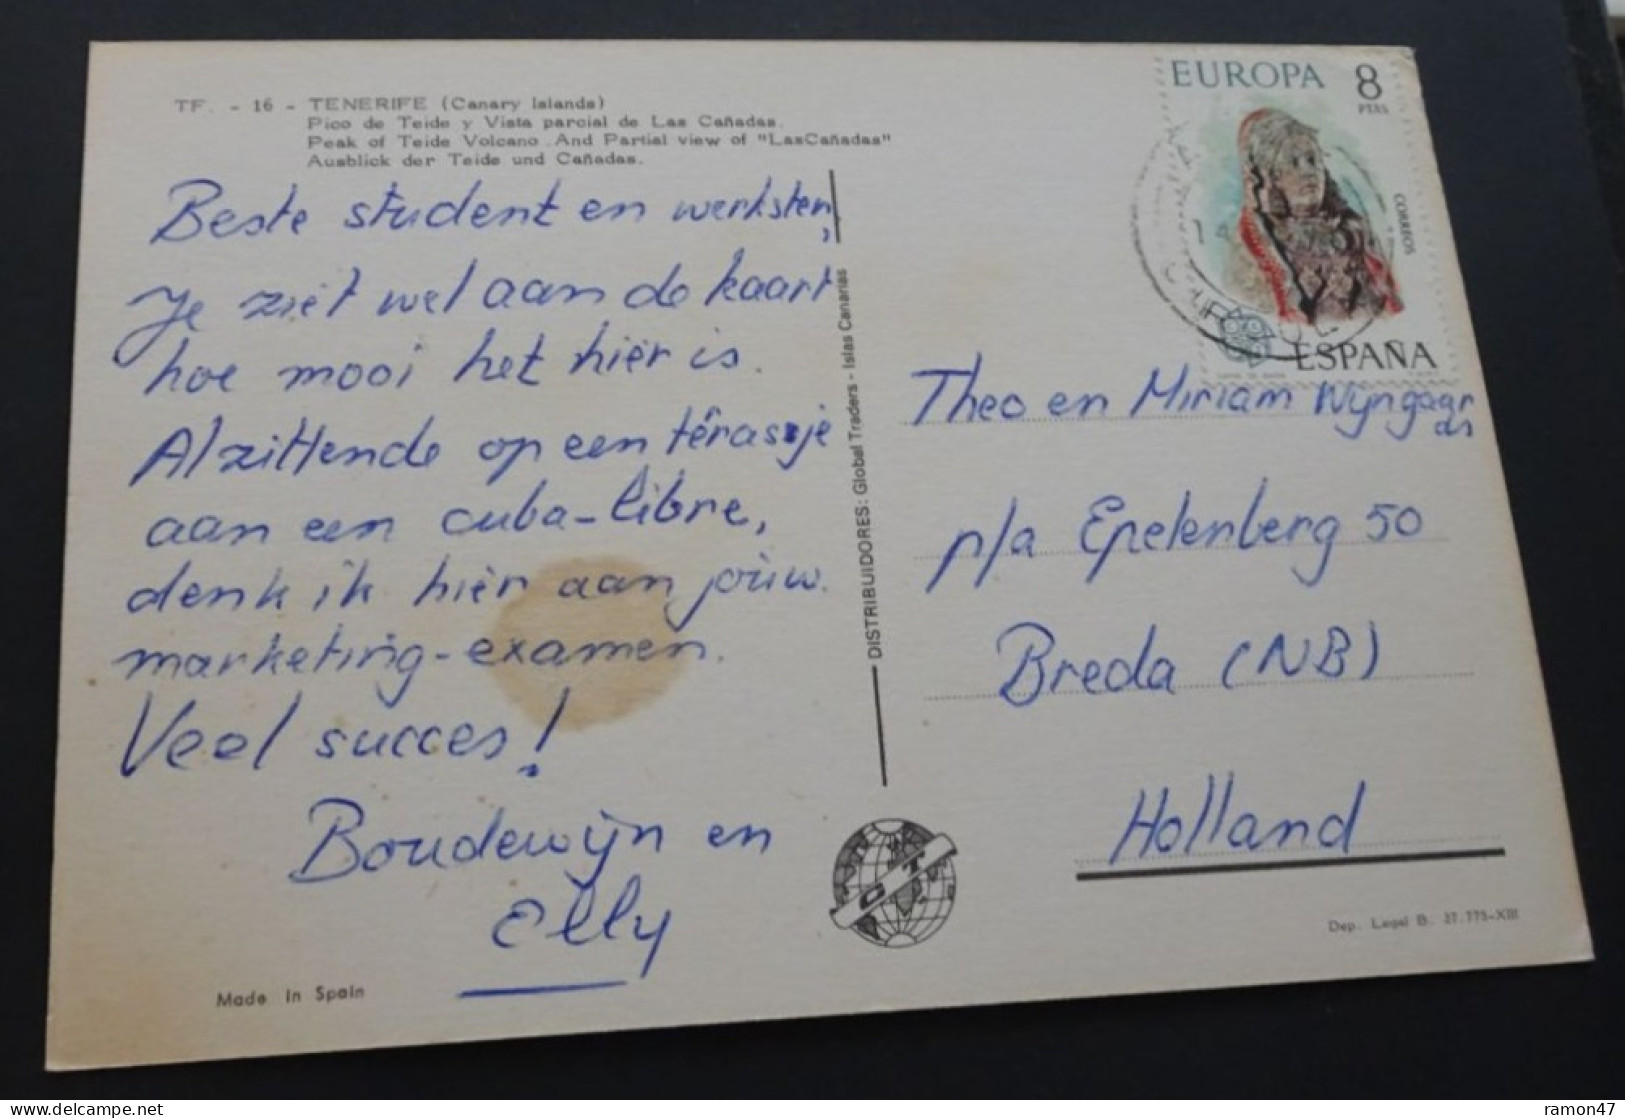 TF. - 16 - TENERIFE (Canary Islands)
Pico de Teide y Vista parcial de Las Cañadas.
Peak of Teide Volcano. And Partial view of "LasCañadas"
Ausblick der Teide und Cañadas.
Beste student en werksten,
Je ziet wel aan de kaart
hoe mooi het hier is.
Alzittende op een têrasje
aan een cuba-libre,
denk ik hier aan jouw.
marketing-examen.
Veel succes!
Boudewijn en
Elly
Made in Spain
DISTRIBUIDORES: Global Traders - Islas Canarias
EUROPA 8
PTAS
CORREOS
ESPAÑA
Theo en Miriam Wijngaar
den
p/a Epelenberg 50
Breda (NB)
Holland
Dep. Legal B. 27.775-XIII
ramon47